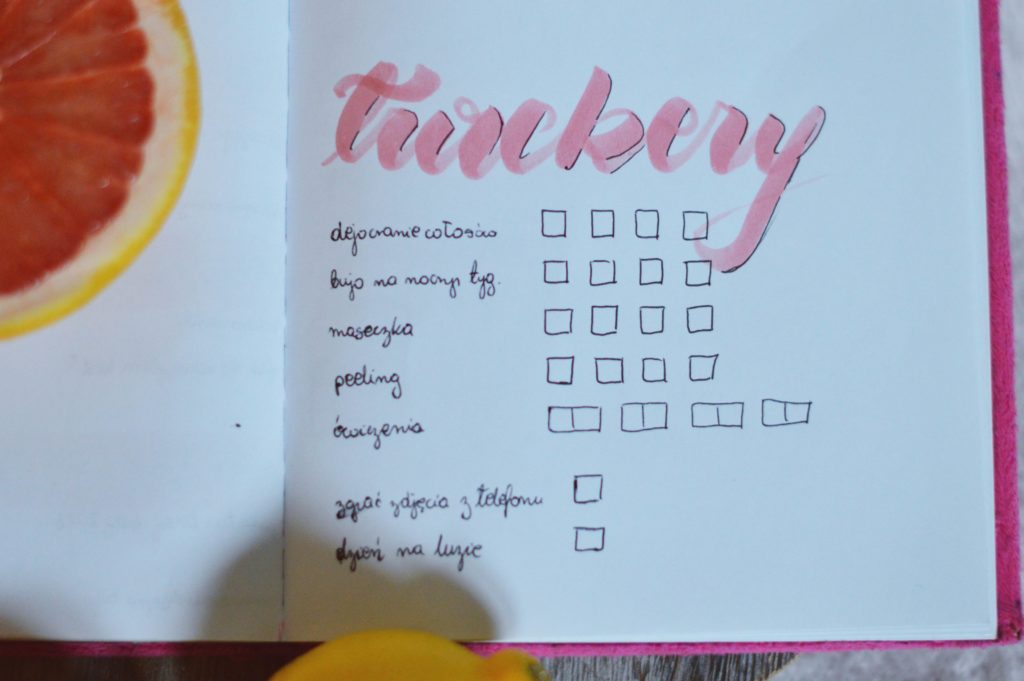 trackery
olejowanie włosów
bujo na nocnyj tyg.
maseczka
peeling
ćwiczenia
zgrać zdjęcia z telefonu
dzień na luzie